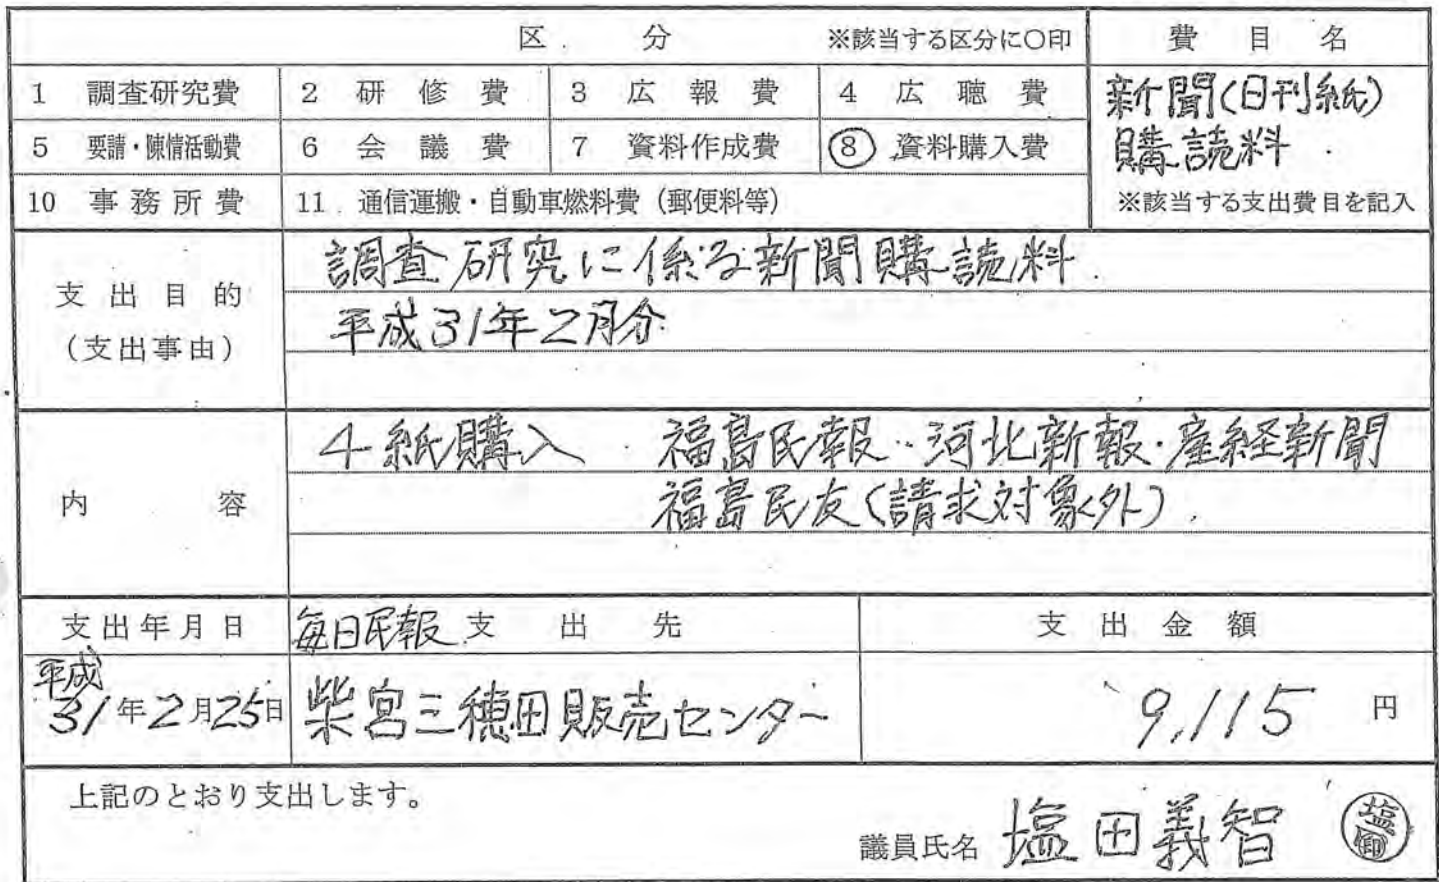 区 分 ※該当する区分に○印 費 目 名
1 調査研究費 2 研 修 費 3 広 報 費 4 広 聴 費
新聞(日刊紙)
5 要請・陳情活動費 6 会 議 費 7 資料作成費 ⑧ 資料購入費
購読料
10 事 務 所 費 11 通信運搬・自動車燃料費(郵便料等)
※該当する支出費目を記入
支 出 目 的
(支出事由)
調査研究に係る新聞購読料
平成31年2月分
内 容
4紙購入 福島民報・河北新報・産経新聞
福島民友(請求対象外)
支出年月日 毎日民報 支 出 先 支 出 金 額
平成
31年2月25日 柴宮三穂田販売センター 9,115 円
上記のとおり支出します。
議員氏名 塩田義智
塩田印